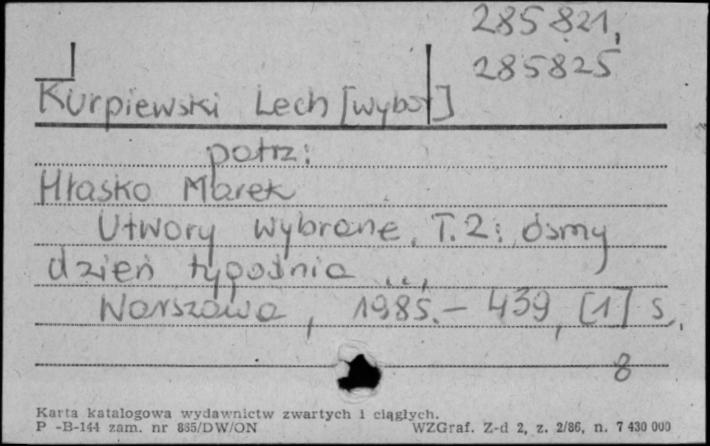 285 821,
285825
Kurpiewski Lech [wybór]
patrz:
Hłasko Marek
Utwory wybrane. T.2: Ósmy
dzień tygodnia ...,
Warszawa, 1985. - 439, [1] s.
8
Karta katalogowa wydawnictw zwartych i ciągłych.
P -B-144 zam. nr 865/DW/ON WZGraf. Z-d 2, z. 2/86, n. 7 430 000